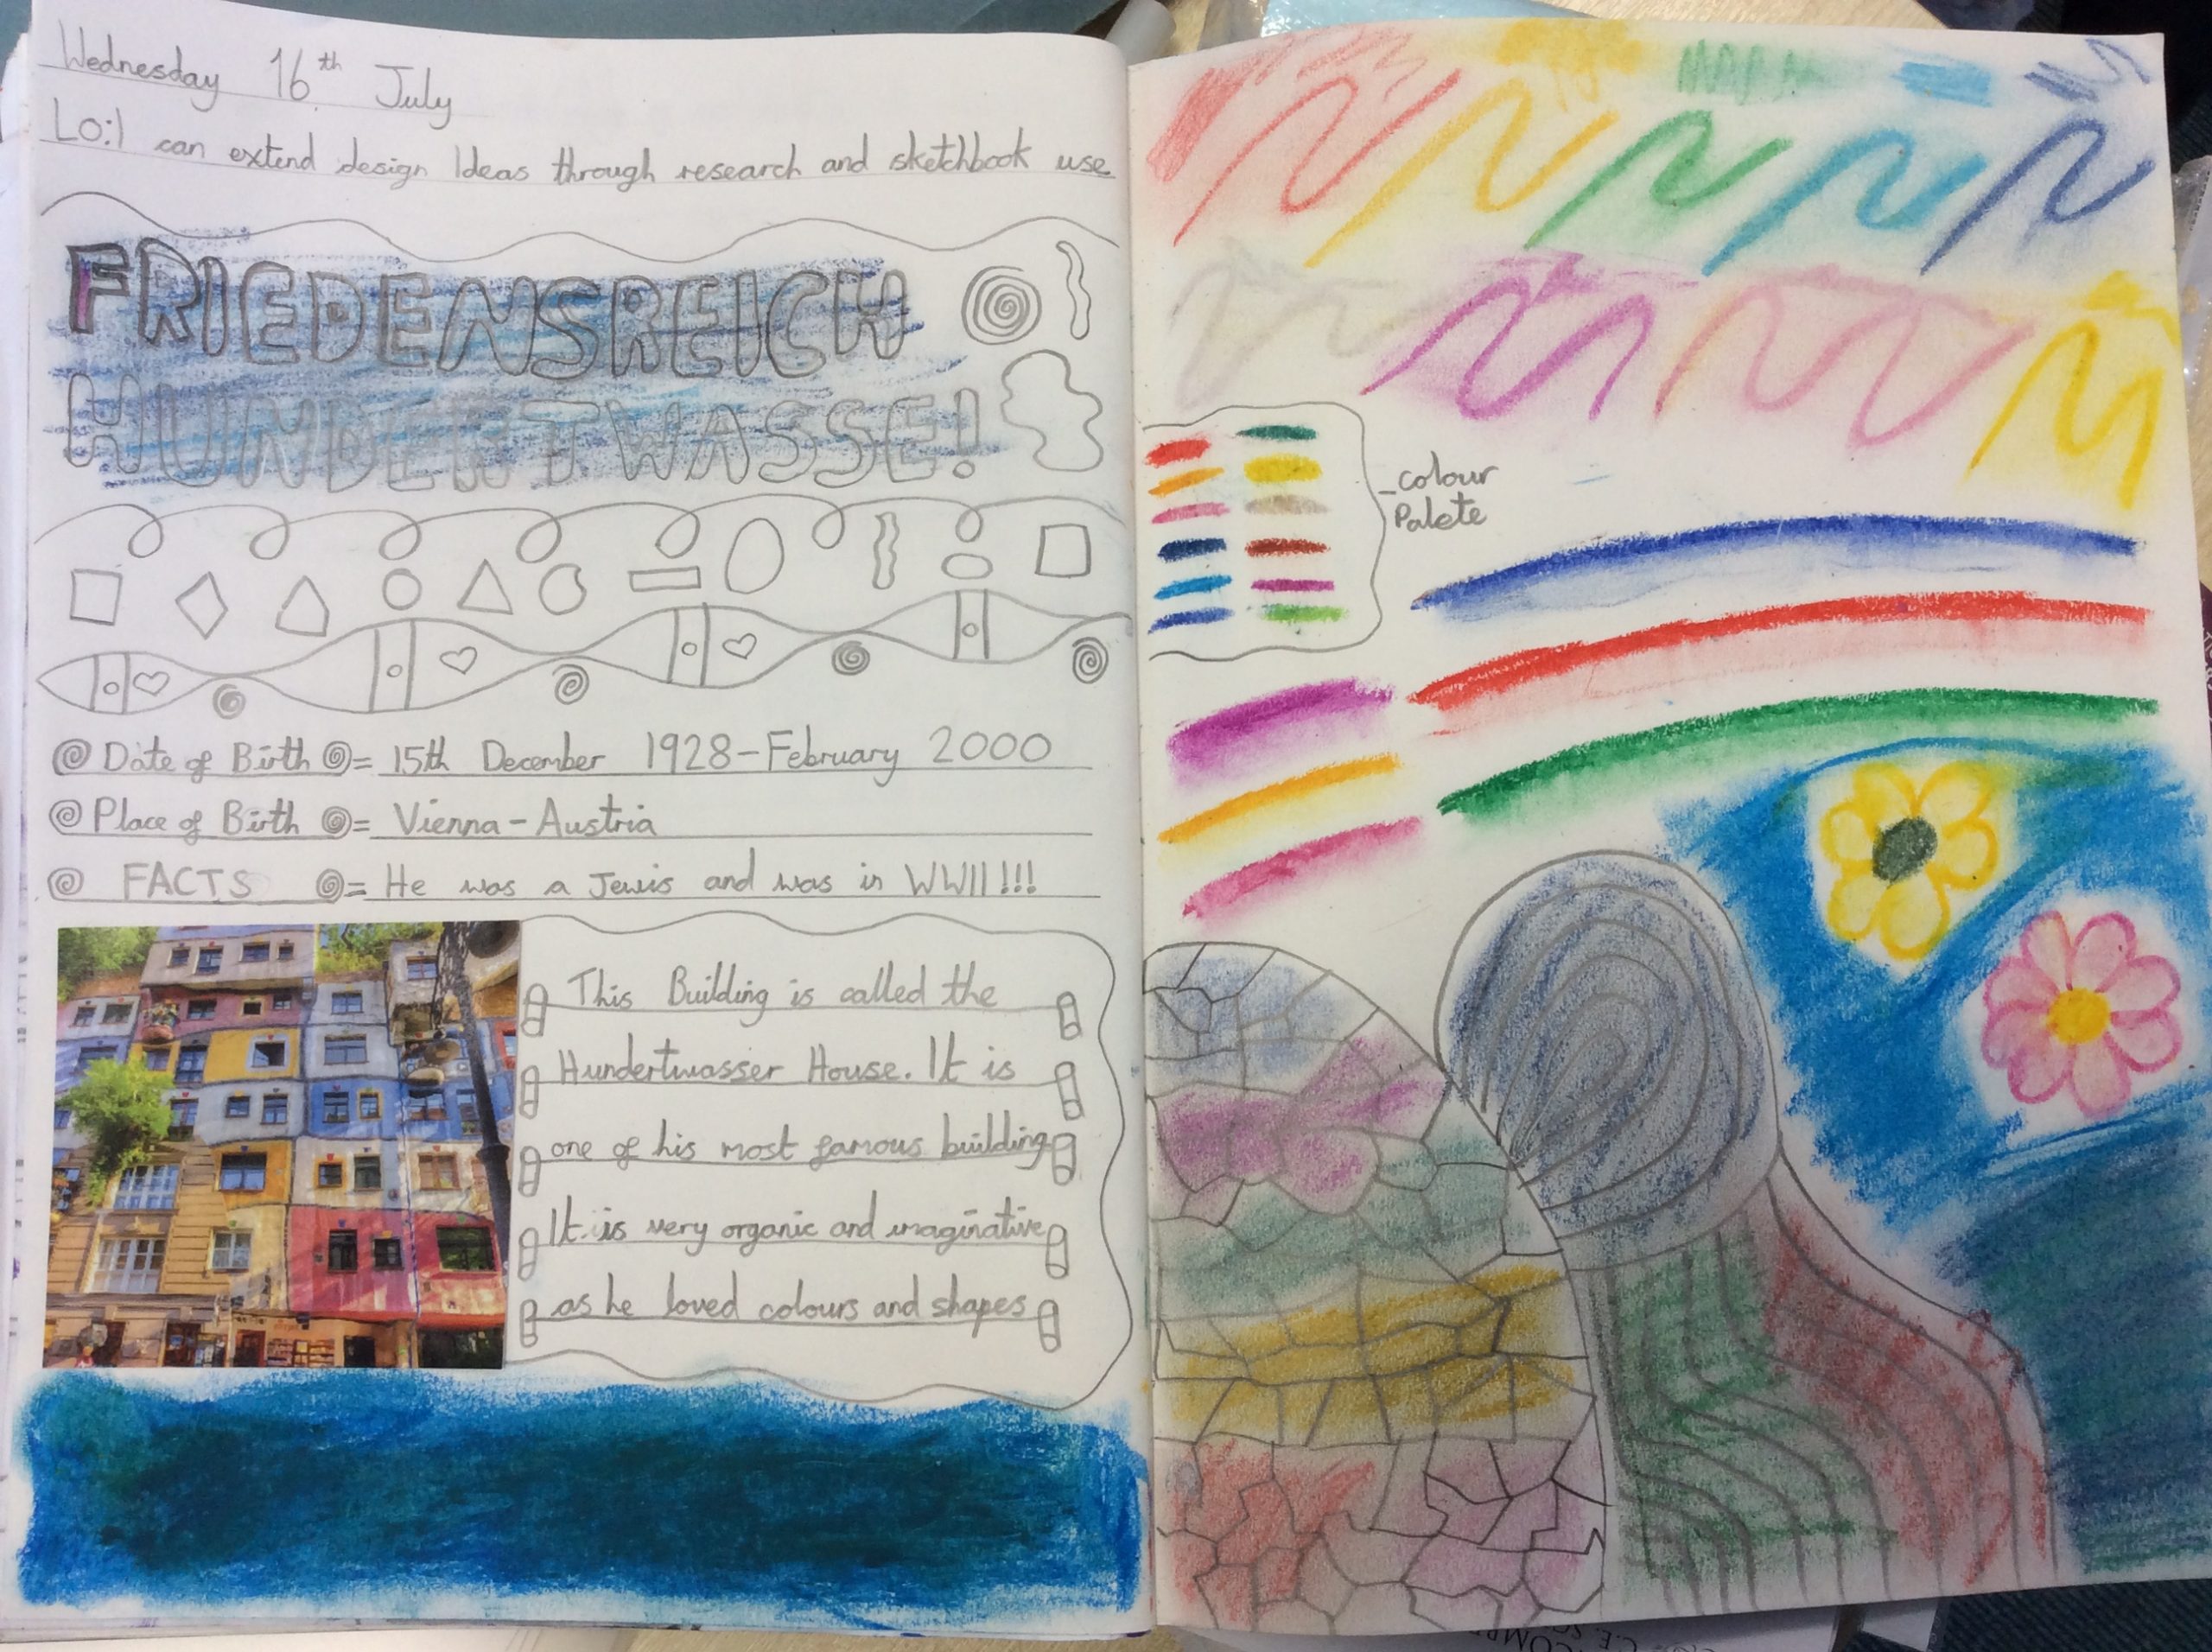 Wednesday 16th July
LO:I can extend design Ideas through research and sketchbook use
FRIEDENSREICH
HUNDERTWASSE!
Date of Birth = 15th December 1928-February 2000
Place of Birth = Vienna-Austria
FACTS = He was a Jewis and was in WWII!!!
This Building is called the
Hundertwasser House. It is
one of his most famous building
It is very organic and imaginative
as he loved colours and shapes
colour
Palete